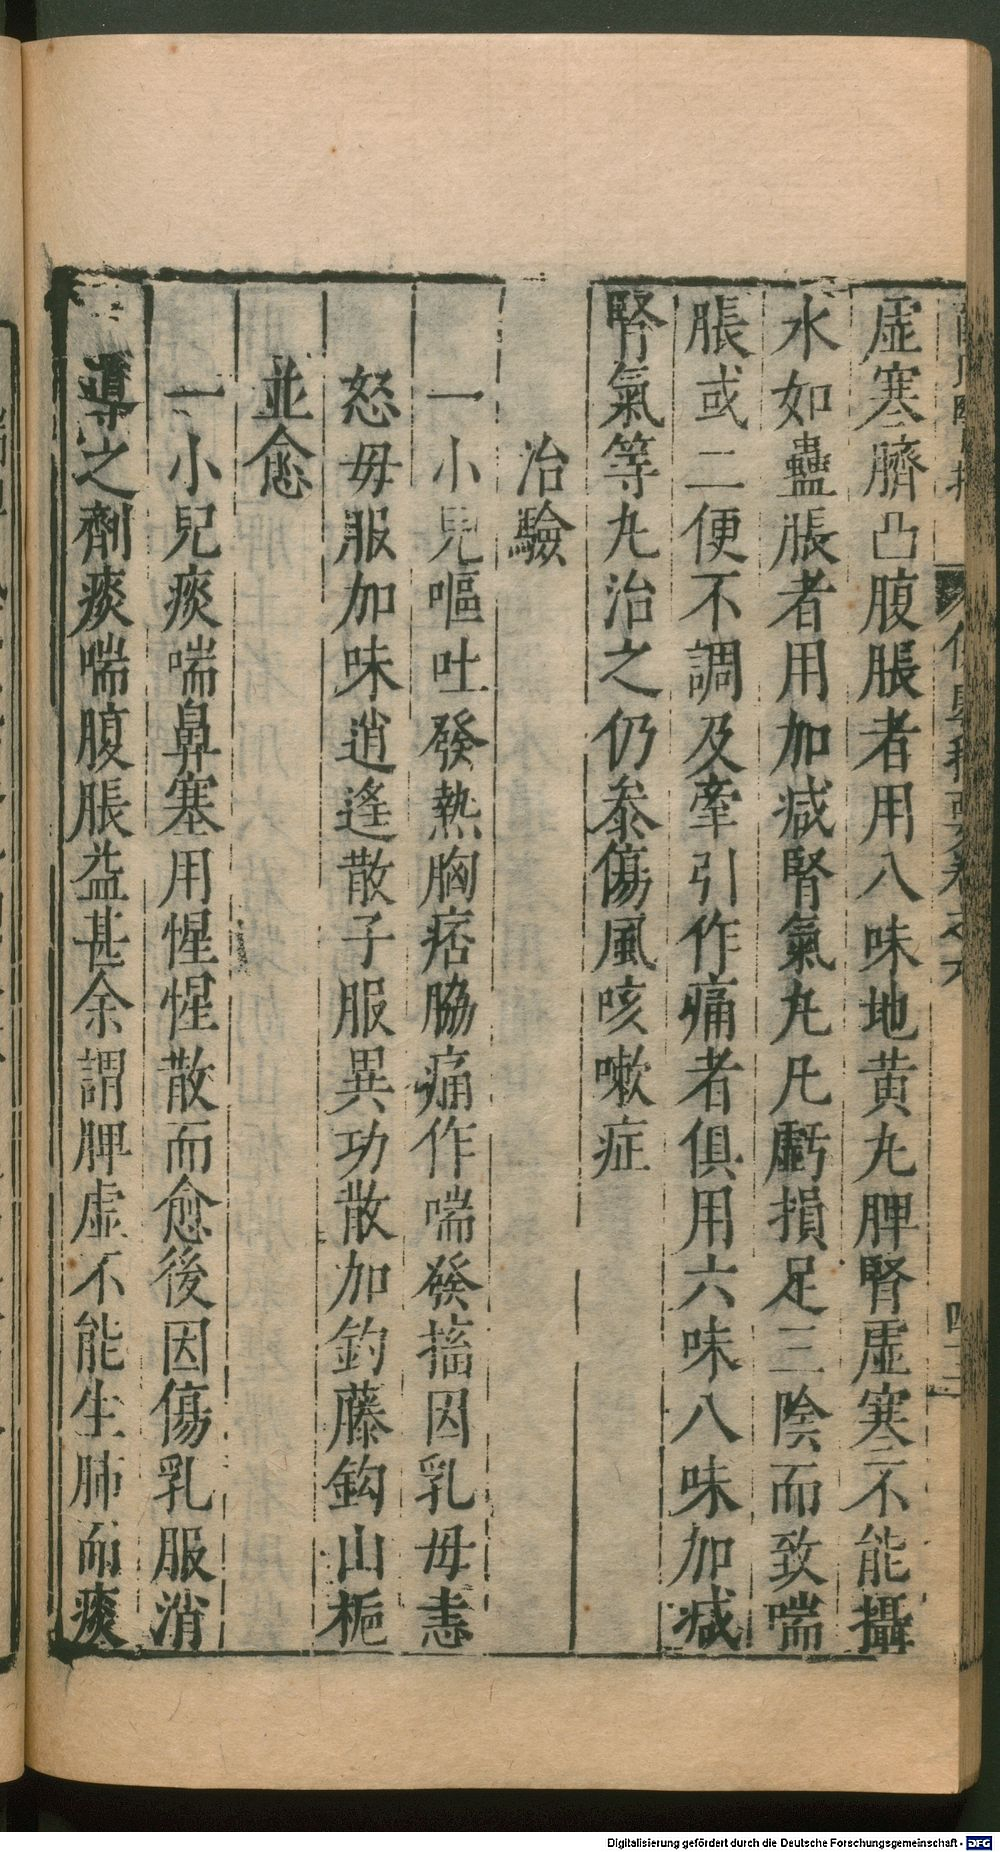 虛寒臍凸腹脹者用八味地黄丸脾腎虛寒不能攝
水如蠱脹者用加减腎氣丸凡虧損足三陰而致喘
脹或二便不調及牽引作痛者俱用六味八味加减
腎氣等丸治之仍叅傷風咳嗽症
治驗
一小兒嘔吐發熱胸痞脇痛作喘發搐因乳母恚
怒母服加味逍遙散子服異功散加釣藤鈎山梔
並愈
一小兒痰喘鼻塞用惺惺散而愈後因傷乳服消
導之劑痰喘腹脹益甚余謂脾虛不能生肺而痰
四十二
Digitalisierung gefördert durch die Deutsche Forschungsgemeinschaft - DFG